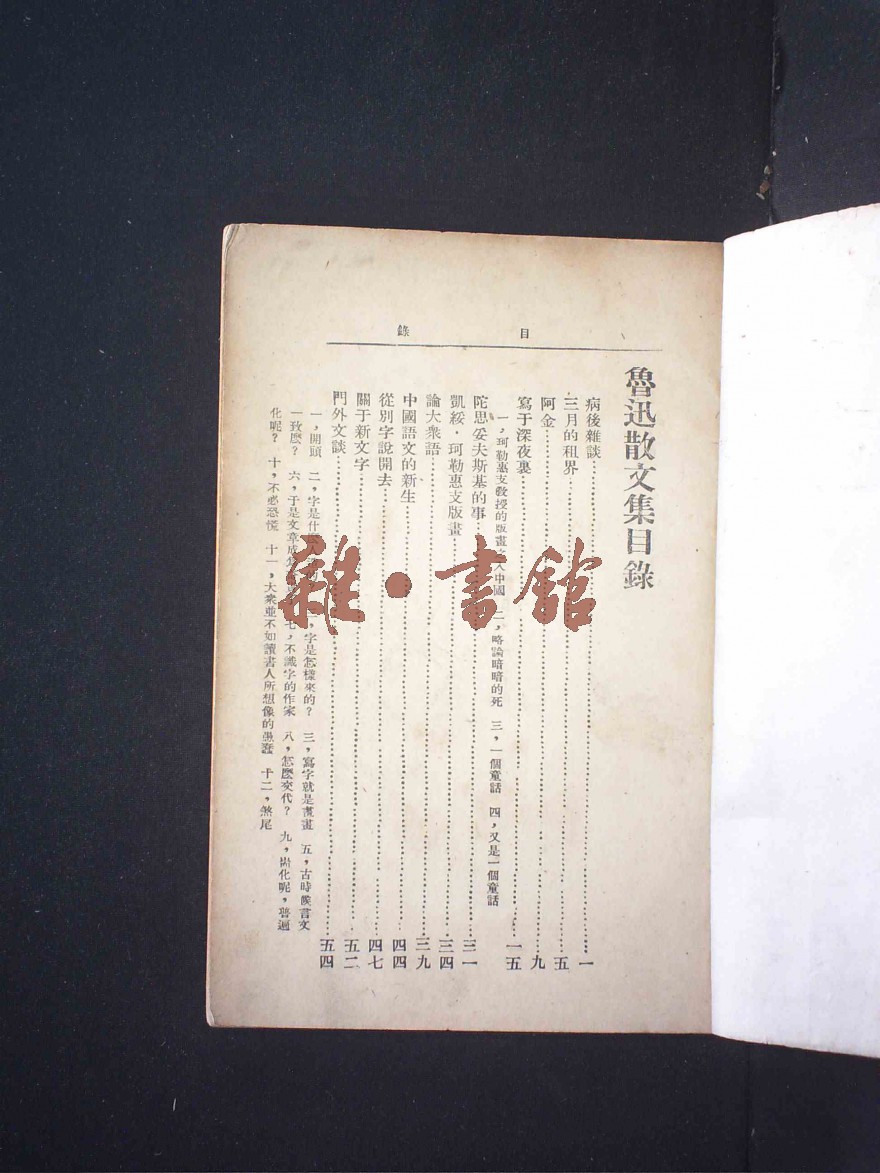 目錄
魯迅散文集目錄
病後雜談……一
三月的租界……五
阿金……九
寫于深夜裏……一五
一，珂勒惠支教授的版畫入中國 二，略論暗暗的死 三，一個童話 四，又是一個童話
陀思妥夫斯基的事……三一
凱綏·珂勒惠支版畫……三四
論大衆語……三九
中國語文的新生……四四
從別字說開去……四七
關于新文字……五二
門外文談……五四
一，開頭 二，字是什 人 ，字是怎樣來的？ 三，寫字就是畫畫 五，古時候言文
一致麽？ 六，于是文章成 七，不識字的作家 八，怎麽交代？ 九，耑化呢，普遍
化呢？ 十，不必恐慌 十一，大衆並不如讀書人所想像的愚蠢 十二，煞尾
雜·書館